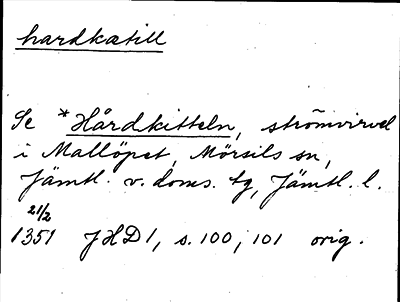 hardkætill
Se *Hårdkitteln, strömvirvel
i Mallöpet, Mörsils sn,
Jämtl. v. doms. tg, Jämtl. l.
21/2
1351 JHD 1, s. 100, 101 orig.